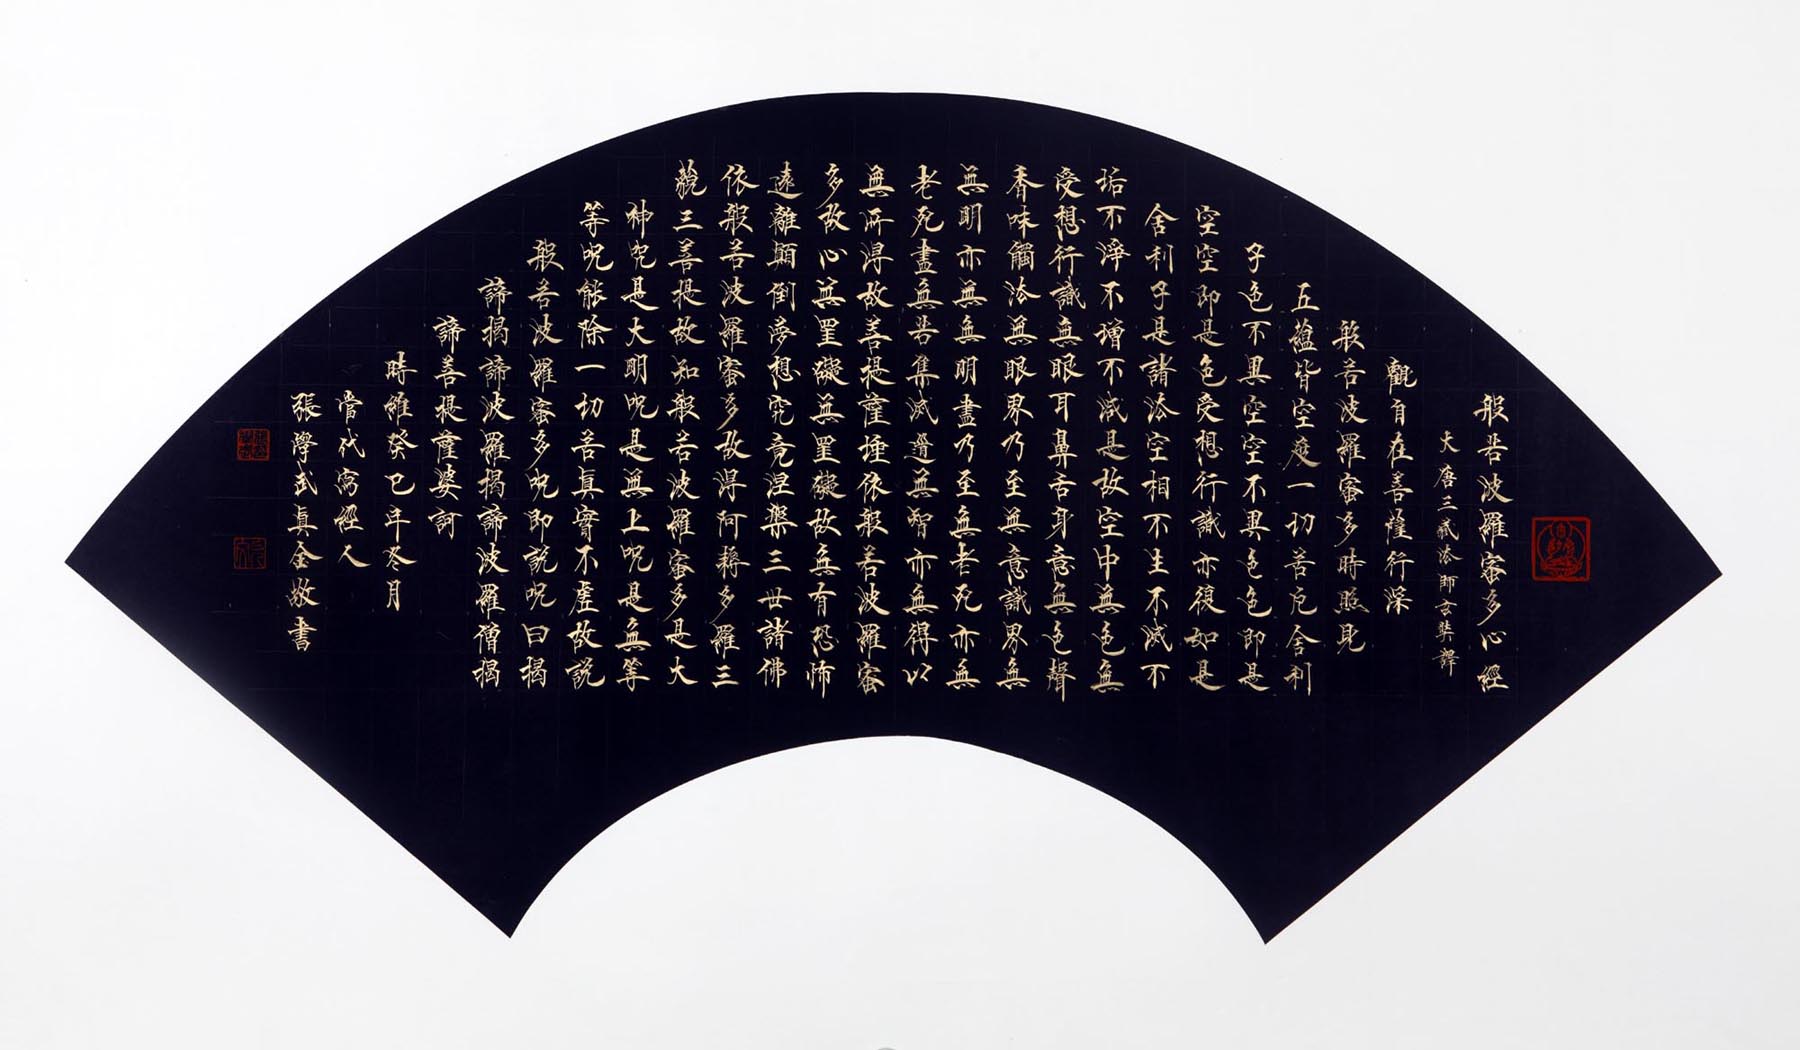 般若波羅蜜多心經
大唐三藏法師玄奘譯
觀自在菩薩行深
般若波羅蜜多時照見
五蘊皆空度一切苦厄舍利
子色不異空空不異色色即是
空空即是色受想行識亦復如是
舍利子是諸法空相不生不滅不
垢不淨不增不減是故空中無色無
受想行識無眼耳鼻舌身意無色聲
香味觸法無眼界乃至無意識界無
無明亦無無明盡乃至無老死亦無
老死盡無苦集滅道無智亦無得以
無所得故菩提薩埵依般若波羅蜜
多故心無罣礙無罣礙故無有恐怖
遠離顛倒夢想究竟涅槃三世諸佛
依般若波羅蜜多故得阿耨多羅三
藐三菩提故知般若波羅蜜多是大
神咒是大明呪是無上呪是無等
等呪能除一切苦真實不虛故説
般若波羅蜜多呪即説呪曰揭
諦揭諦波羅揭諦波羅僧揭
諦菩提薩婆訶
時維癸巳年冬月
當代寫經人
張學武真金敬書